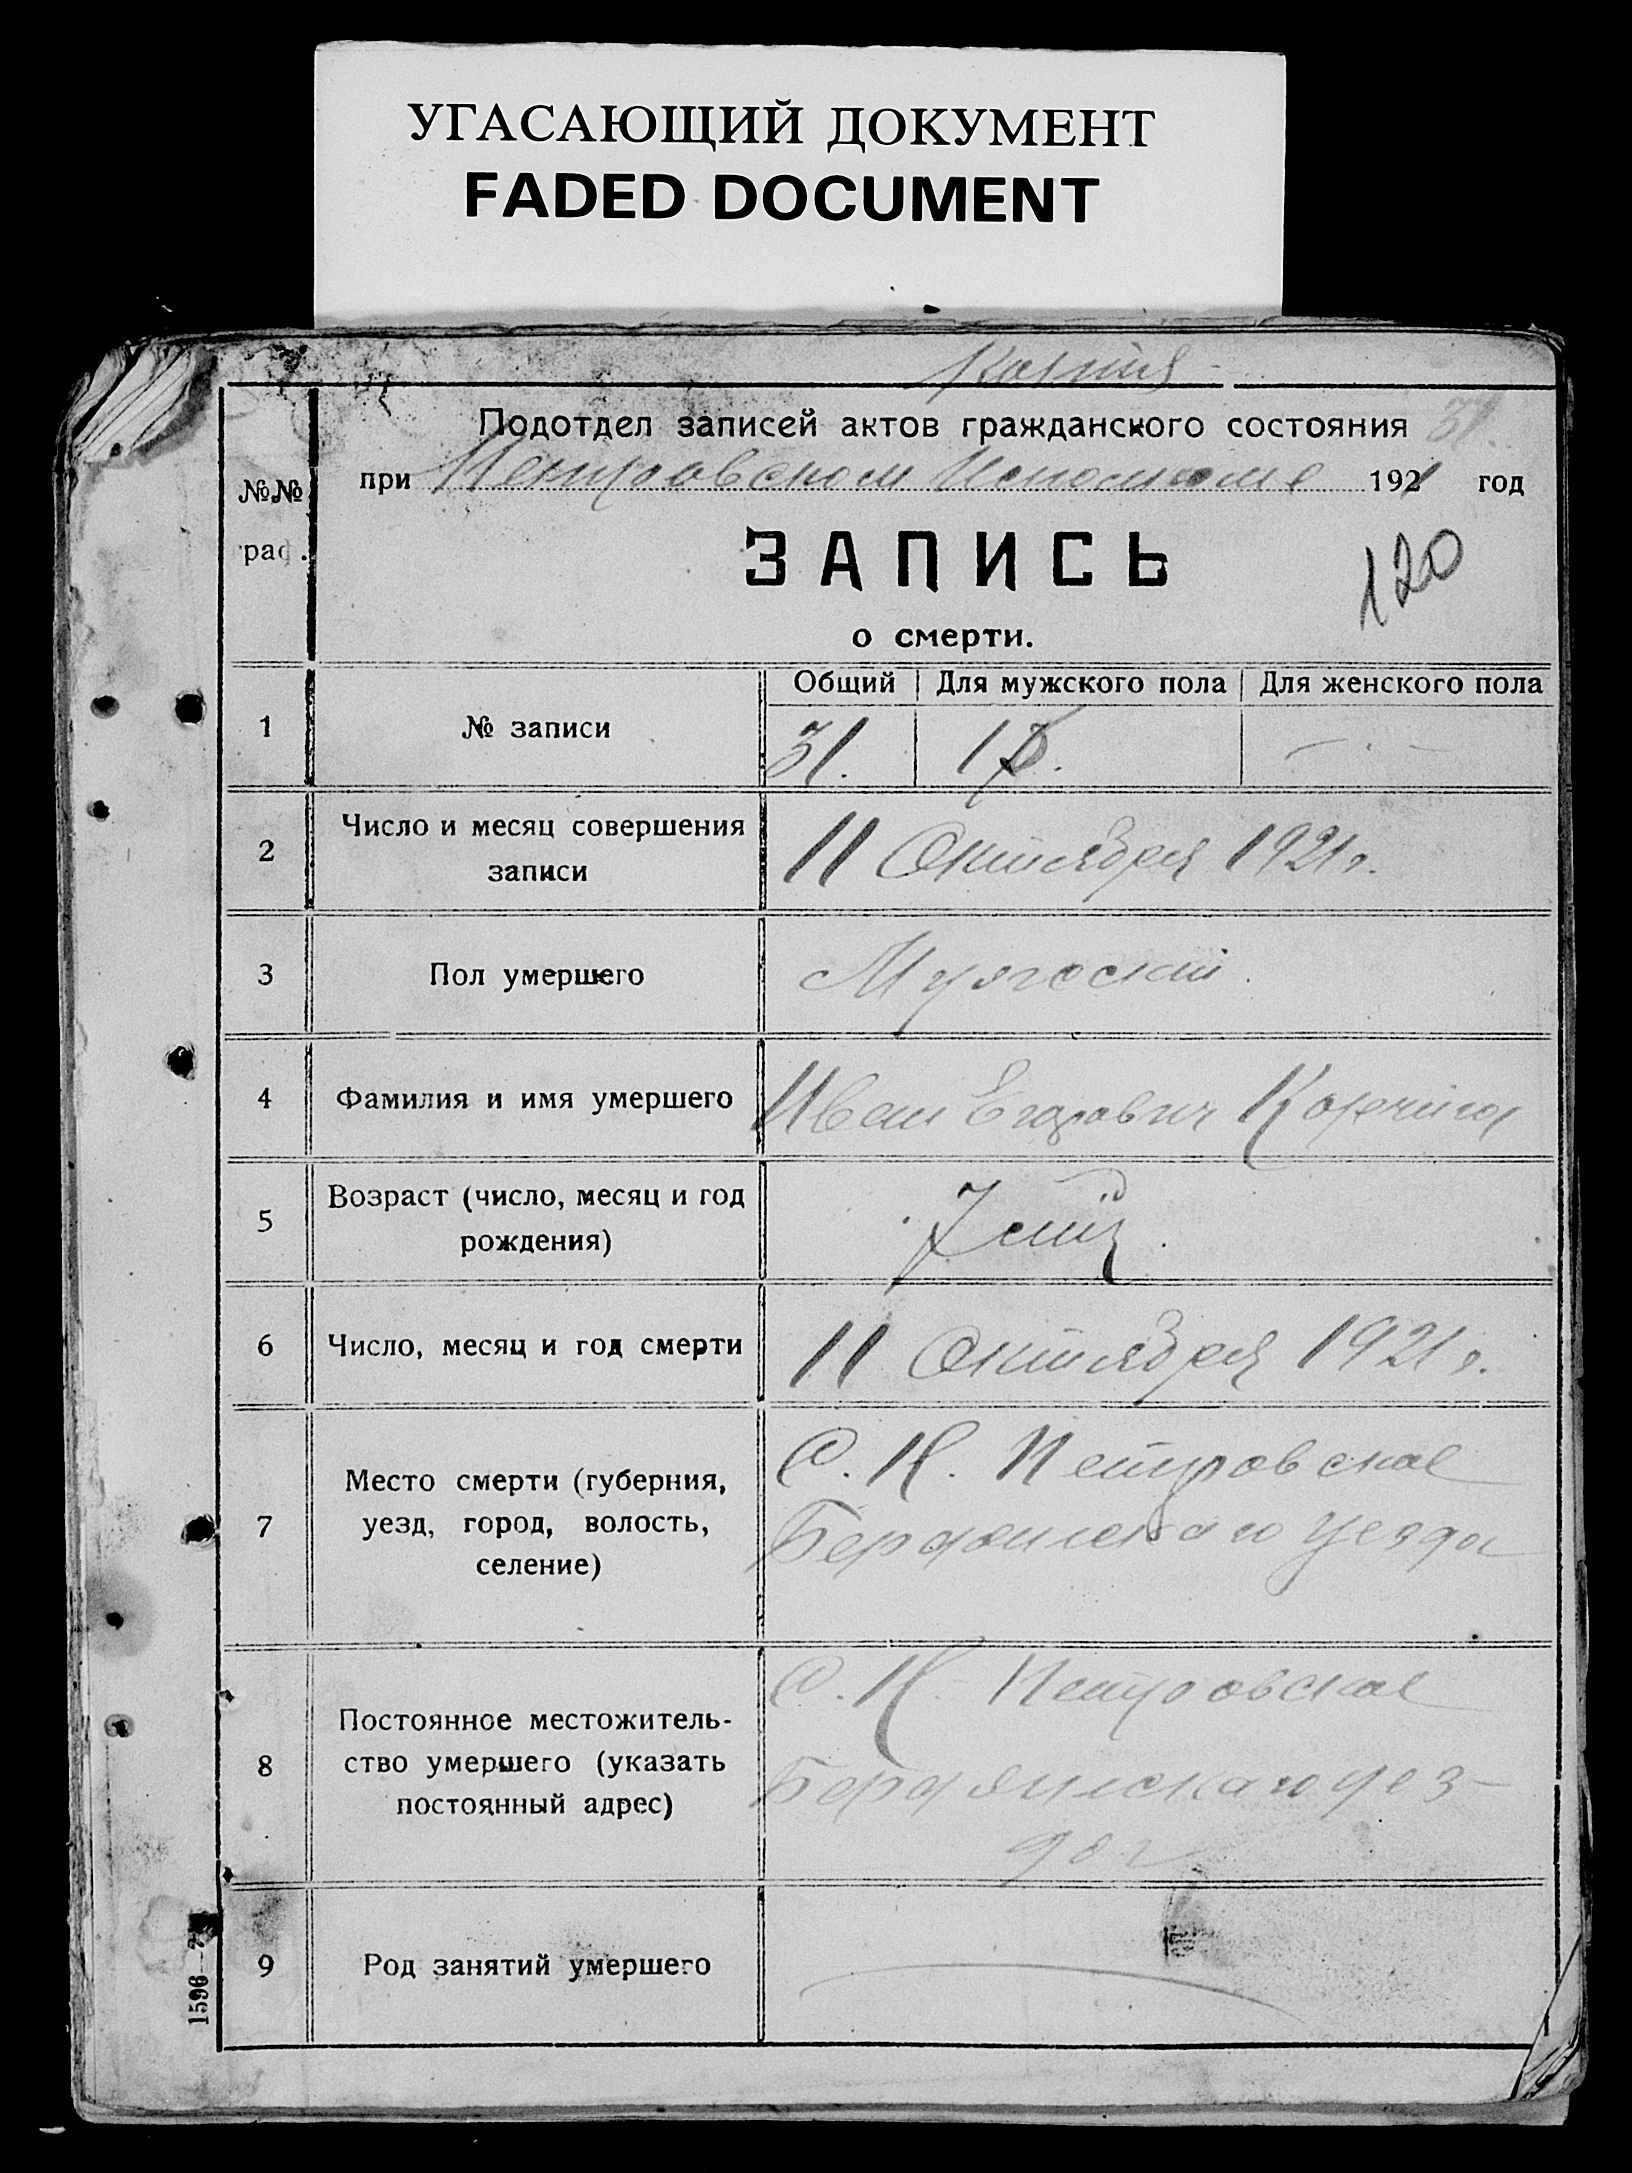 УГАСАЮЩИЙ ДОКУМЕНТ
FADED DOCUMENT
Копия
Подотдел записей актов гражданского состояния 31.
№№
раф.
при Петровском Исполкоме 1921 год
ЗАПИСЬ
120
о смерти.
Общий Для мужского пола Для женского пола
1 № записи 31. —
2 Число и месяц совершения записи 11 Октября 1921 г.
3 Пол умершего Мужской
4 Фамилия и имя умершего Иван Егорович
5 Возраст (число, месяц и год
рождения) 7 лет.
6 Число, месяц и год смерти 11 Октября 1921 г.
7 Место смерти (губерния,
уезд, город, волость,
селение)
С. Н. Петровское
Бердянского уезда
8 Постоянное местожитель-
ство умершего (указать
постоянный адрес)
С. Н. Петровское
Бердянского уез-
да
9 Род занятий умершего
1596